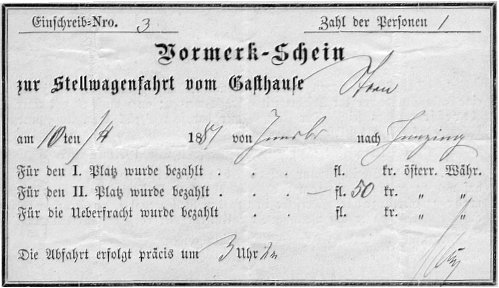 Einschreib-Nro. 3 Zahl der Personen 1
Vormerk-Schein
zur Stellwagenfahrt vom Gasthause
am 10ten /4 1881 von Innsbr nach
Für den I. Platz wurde bezahlt . . . fl. kr. österr. Währ.
Für den II. Platz wurde bezahlt . . . – fl. 50 kr. „ „
Für die Ueberfracht wurde bezahlt . . fl. kr. „ „
Die Abfahrt erfolgt präcis um 3 Uhr